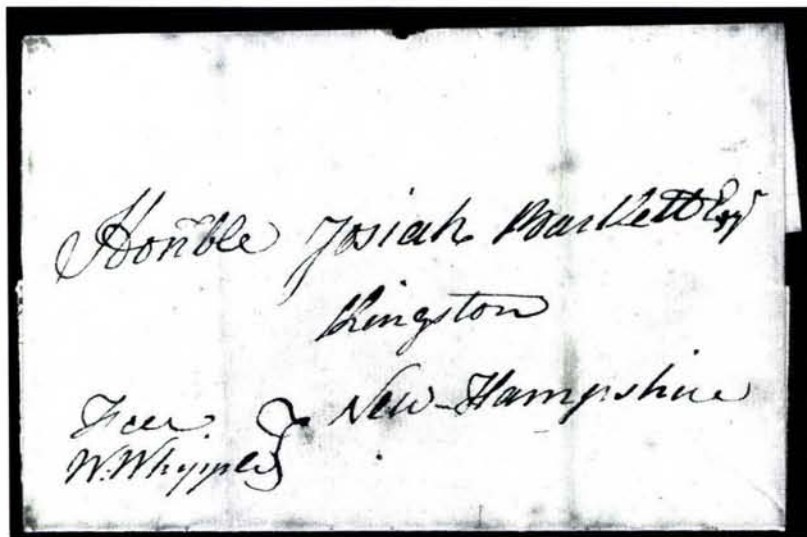 Honble Josiah Bartlett Esqr
Kingston
New-Hampshire
Free
W. Whipple